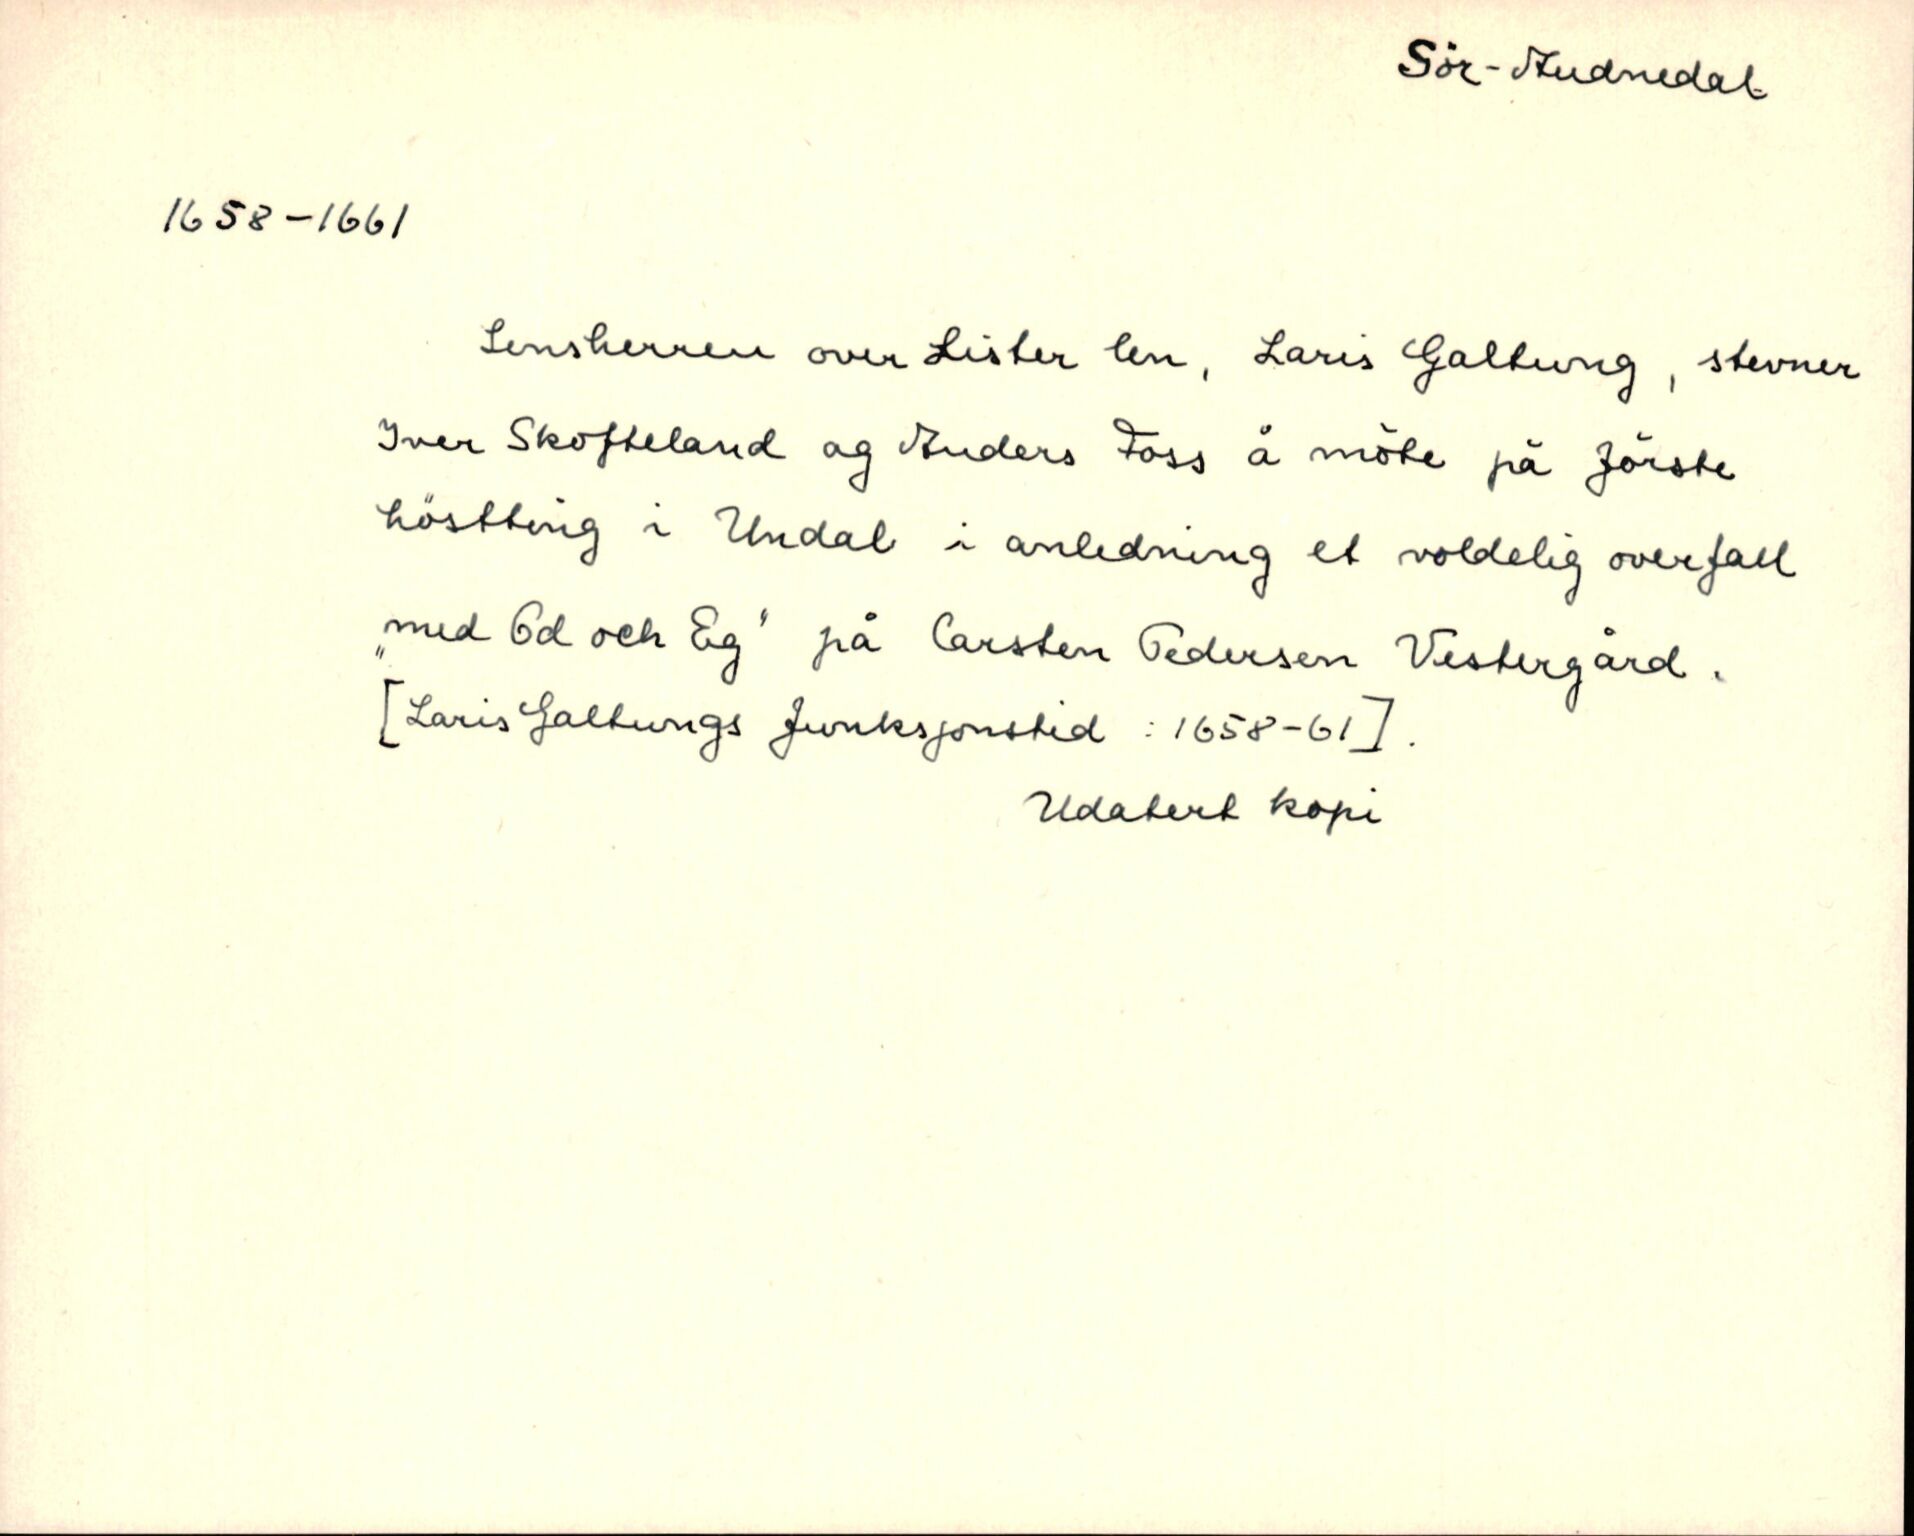 Sör-Audnedal
1658-1661
Lensherren over Lister len, Laris Galtung, stevner
Iver Skofteland og Anders Foss å möte på förste
höstting i Undal i anledning et voldelig overfall
„med Od och Eg" på Carsten Pedersen Vestergård.
[Laris Galtungs funksjonstid : 1658-61].
Udatert kopi